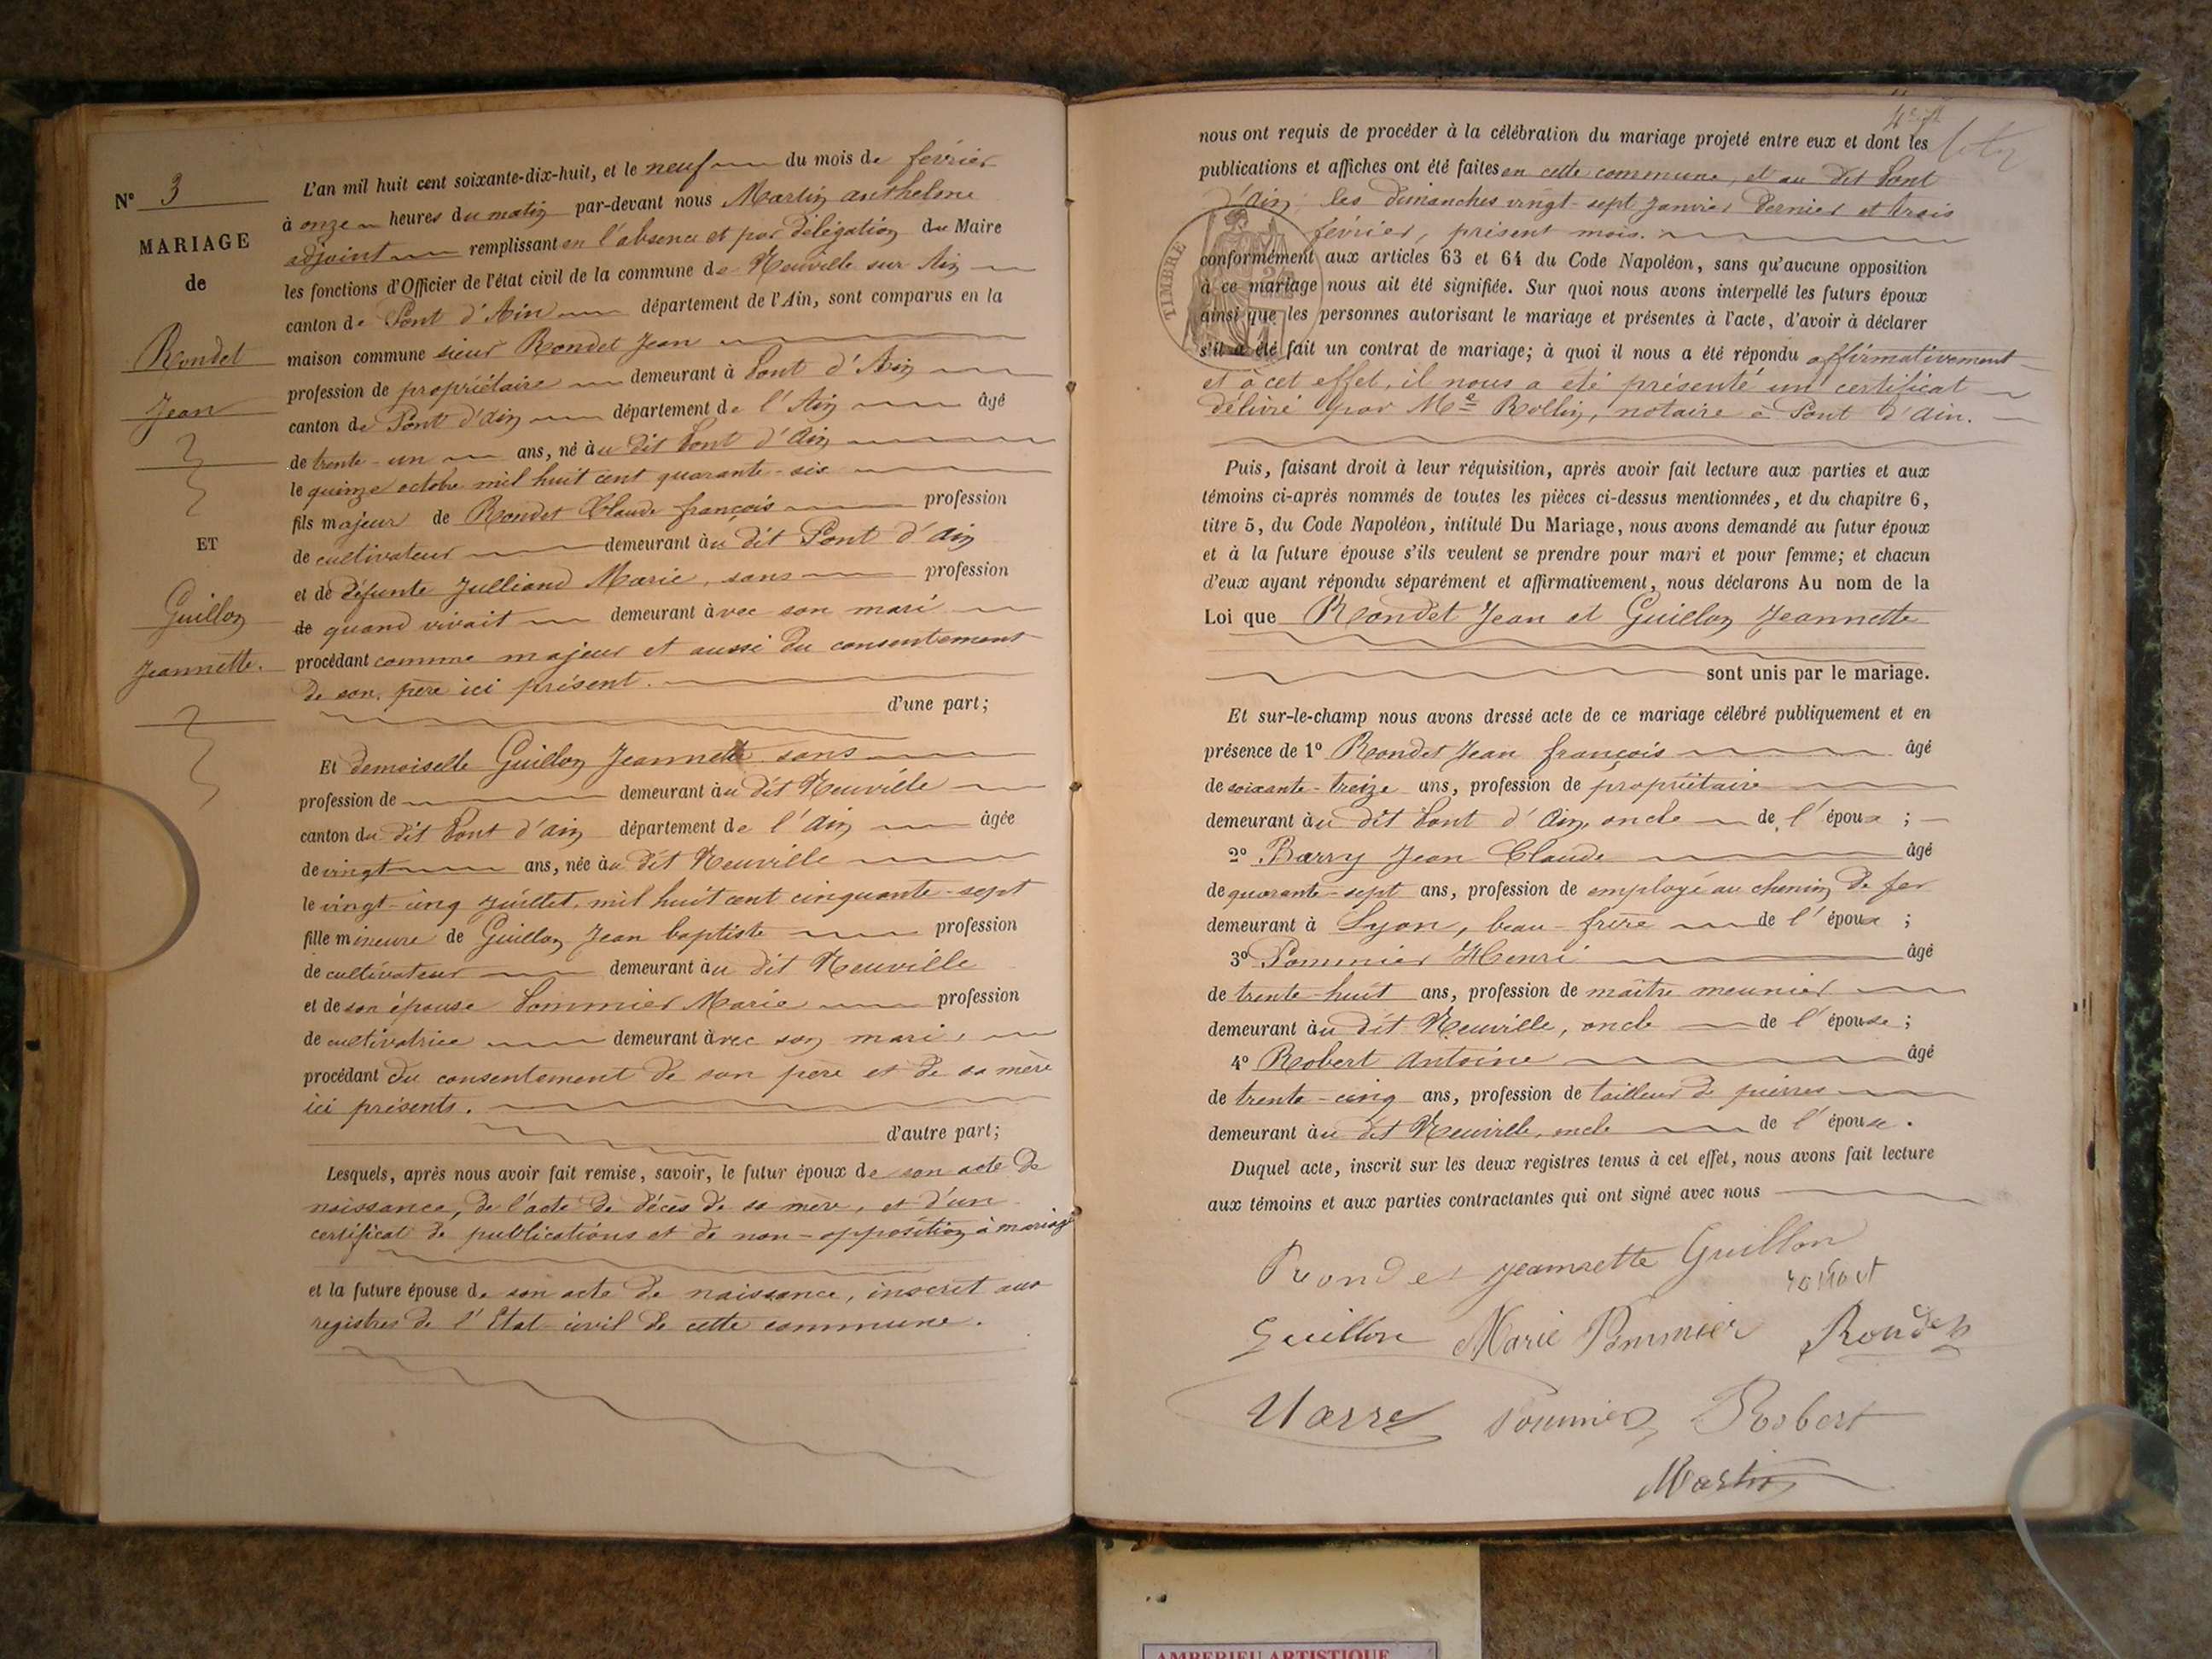 N° 3
MARIAGE
de
Rondet
Jean
ET
Guillon
Jeannette.
L'an mil huit cent soixante-dix-huit, et le neuf du mois de février
à onze heures du matin par-devant nous Martin anthelme
adjoint remplissant en l'absence et par délégation du Maire
les fonctions d'Officier de l'état civil de la commune de Neuville sur Ain
canton de Pont d'Ain département de l'Ain, sont comparus en la
maison commune sieur Rondet Jean
profession de propriétaire demeurant à Pont d'Ain
canton de Pont d'Ain département de l'Ain âgé
de trente-un ans, né àu dit Pont d'Ain
le quinze octobre mil huit cent quarante-six
fils majeur de Rondet Claude françois profession
de cultivateur demeurant àu dit Pont d'Ain
et de défunte Julliand Marie, sans profession
de quand vivait demeurant àvec son mari
procédant comme majeur et aussi du consentement
de son père ici présent.
d'une part;
Et demoiselle Guillon Jeannette sans
profession de demeurant àu dit Neuville
canton du dit Pont d'ain département de l'Ain âgée
de vingt ans, née àu dit Neuville
le vingt-cinq Juillet, mil huit cent cinquante-sept
fille mineure de Guillon Jean baptiste profession
de cultivateur demeurant àu dit Neuville
et de son épouse Pommier Marie profession
de cultivatrice demeurant àvec son mari,
procédant du consentement de son père et de sa mère
ici présents.
d'autre part;
Lesquels, après nous avoir fait remise, savoir, le futur époux de son acte de
naissance, de l'acte de décès de sa mère, et d'un
certificat de publications et de non-opposition à mariage
et la future épouse de son acte de naissance, inscrit aux
registres de l'Etat-civil de cette commune.
nous ont requis de procéder à la célébration du mariage projeté entre eux et dont les
publications et affiches ont été faites en cette commune, et au dit Pont
d'Ain les dimanches vingt-sept Janvier dernier et trois
février, présent mois.
TIMBRE
conformément aux articles 63 et 64 du Code Napoléon, sans qu'aucune opposition
à ce mariage nous ait été signifiée. Sur quoi nous avons interpellé les futurs époux
ainsi que les personnes autorisant le mariage et présentes à l'acte, d'avoir à déclarer
s'il a été fait un contrat de mariage; à quoi il nous a été répondu affirmativement
et à cet effet, il nous a été présenté un certificat
délivré par Me Rollin, notaire à Pont d'Ain.
Puis, faisant droit à leur réquisition, après avoir fait lecture aux parties et aux
témoins ci-après nommés de toutes les pièces ci-dessus mentionnées, et du chapitre 6,
titre 5, du Code Napoléon, intitulé Du Mariage, nous avons demandé au futur époux
et à la future épouse s'ils veulent se prendre pour mari et pour femme; et chacun
d'eux ayant répondu séparément et affirmativement, nous déclarons Au nom de la
Loi que Rondet Jean et Guillon Jeannette
sont unis par le mariage.
Et sur-le-champ nous avons dressé acte de ce mariage célébré publiquement et en
présence de 1° Rondet Jean françois âgé
de soixante-treize ans, profession de propriétaire
demeurant àu dit Pont d'Ain, oncle de l'époux ;
2° Barry Jean Claude âgé
de quarante-sept ans, profession de employé au chemin de fer
demeurant à Lyon, beau-frère de l'époux ;
3° Pommier Henri âgé
de trente-huit ans, profession de maître meunier
demeurant àu dit Neuville, oncle de l'épouse ;
4° Robert Antoine âgé
de trente-cinq ans, profession de tailleur de pierres
demeurant àu dit Neuville, oncle de l'épouse.
Duquel acte, inscrit sur les deux registres tenus à cet effet, nous avons fait lecture
aux témoins et aux parties contractantes qui ont signé avec nous
Rondet Jeannette Guillon
Guillon Marie Pommier Rondet
Pommier Robert
Martin
AMBERIEU ARTISTIQUE